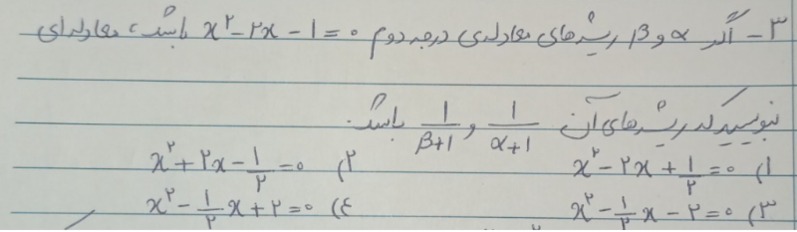 ۳- اگر α و β ریشه‌های معادله‌ی درجه دوم x² - ۲x - ۱ = ۰ باشند، معادله‌ای
بنویسید که ریشه‌های آن 1/(α+1) و 1/(β+1) باشد.
۱) x² - ۲x + ۱/۲ = ۰ ۲) x² + ۲x - ۱/۲ = ۰
۳) x² - ۱/۲ x - ۲ = ۰ ۴) x² - ۱/۲ x + ۲ = ۰